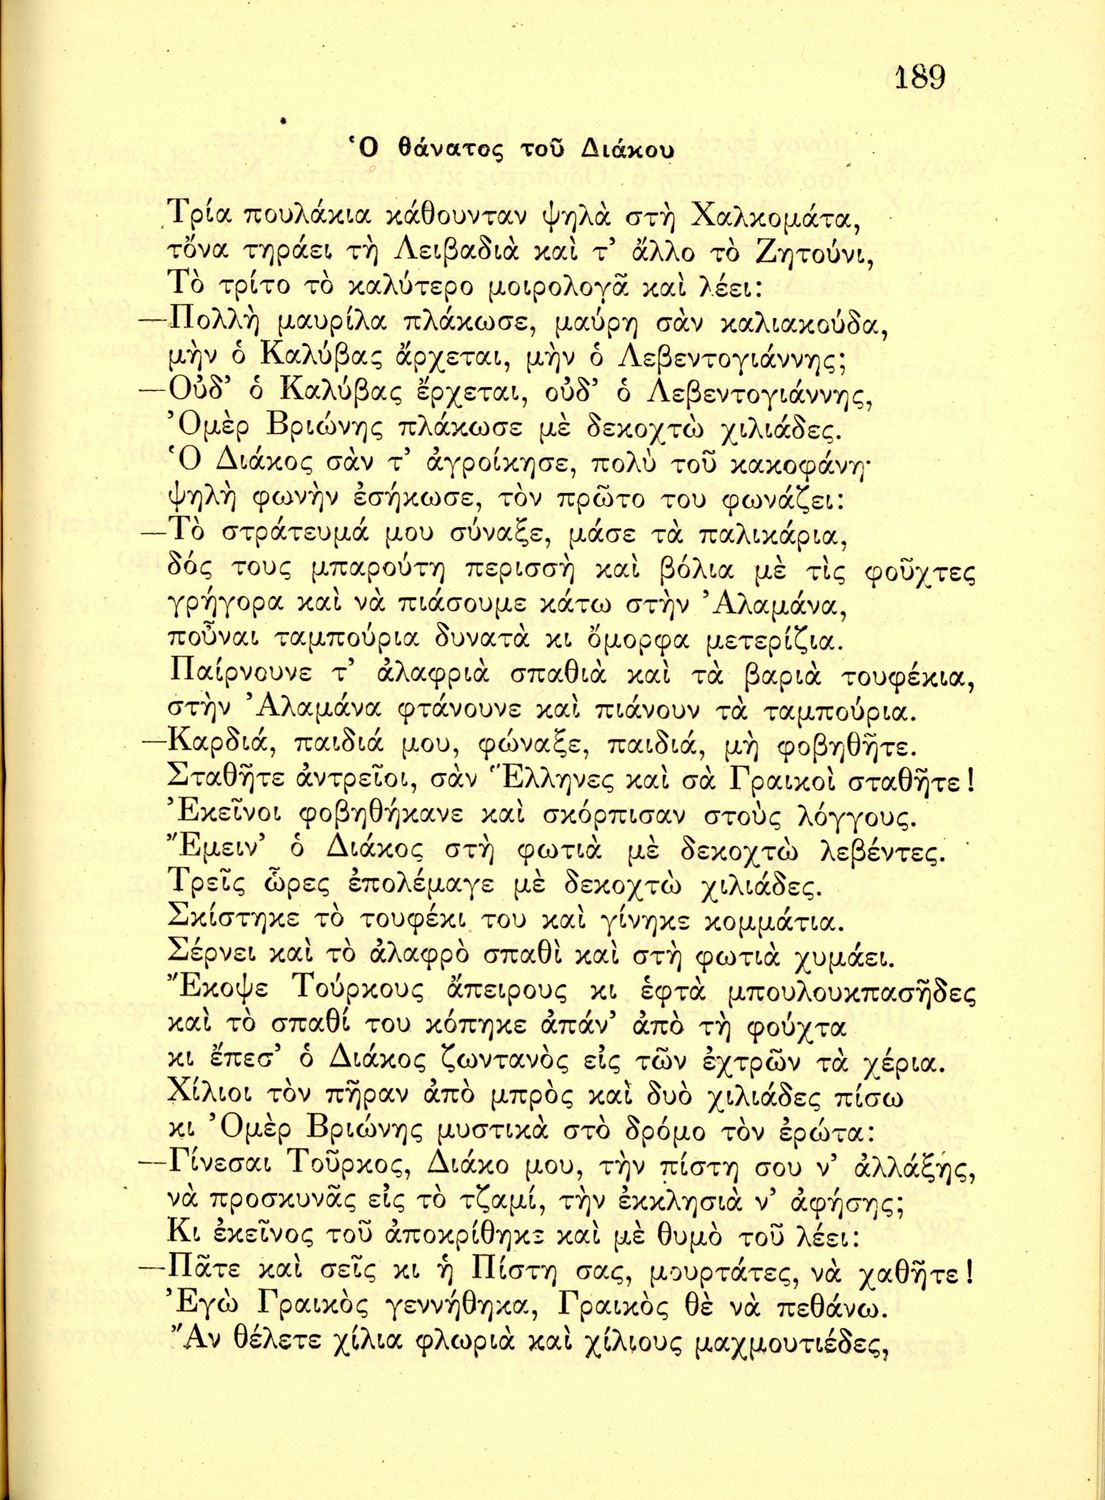 189
Ὁ θάνατος τοῦ Διάκου
Τρία πουλάκια κάθουνταν ψηλὰ στὴ Χαλκομάτα,
τὄνα τηράει τὴ Λειβαδιὰ καὶ τ' ἄλλο τὸ Ζητούνι,
Τὸ τρίτο τὸ καλύτερο μοιρολογᾶ καὶ λέει:
—Πολλὴ μαυρίλα πλάκωσε, μαύρη σὰν καλιακούδα,
μὴν ὁ Καλύβας ἄρχεται, μὴν ὁ Λεβεντογιάννης;
—Οὐδ' ὁ Καλύβας ἔρχεται, οὐδ' ὁ Λεβεντογιάννης,
Ὀμὲρ Βριώνης πλάκωσε μὲ δεκοχτὼ χιλιάδες.
Ὁ Διάκος σὰν τ' ἀγροίκησε, πολὺ τοῦ κακοφάνη·
ψηλὴ φωνὴν ἐσήκωσε, τὸν πρῶτο του φωνάζει:
—Τὸ στράτευμά μου σύναξε, μάσε τὰ παλικάρια,
δός τους μπαρούτη περισσὴ καὶ βόλια μὲ τὶς φοῦχτες
γρήγορα καὶ νὰ πιάσουμε κάτω στὴν Ἀλαμάνα,
ποὖναι ταμπούρια δυνατὰ κι ὄμορφα μετερίζια.
Παίρνουνε τ' ἀλαφριὰ σπαθιὰ καὶ τὰ βαριὰ τουφέκια,
στὴν Ἀλαμάνα φτάνουνε καὶ πιάνουν τὰ ταμπούρια.
—Καρδιά, παιδιά μου, φώναξε, παιδιά, μὴ φοβηθῆτε.
Σταθῆτε ἀντρεῖοι, σὰν Ἕλληνες καὶ σὰ Γραικοὶ σταθῆτε!
Ἐκεῖνοι φοβηθήκανε καὶ σκόρπισαν στοὺς λόγγους.
Ἔμειν' ὁ Διάκος στὴ φωτιὰ μὲ δεκοχτὼ λεβέντες.
Τρεῖς ὧρες ἐπολέμαγε μὲ δεκοχτὼ χιλιάδες.
Σκίστηκε τὸ τουφέκι του καὶ γίνηκε κομμάτια.
Σέρνει καὶ τὸ ἀλαφρὸ σπαθὶ καὶ στὴ φωτιὰ χυμάει.
Ἔκοψε Τούρκους ἄπειρους κι ἑφτὰ μπουλουκπασῆδες
καὶ τὸ σπαθί του κόπηκε ἀπάν' ἀπὸ τὴ φούχτα
κι ἔπεσ' ὁ Διάκος ζωντανὸς εἰς τῶν ἐχτρῶν τὰ χέρια.
Χίλιοι τὸν πῆραν ἀπὸ μπρὸς καὶ δυὸ χιλιάδες πίσω
κι Ὀμὲρ Βριώνης μυστικὰ στὸ δρόμο τὸν ἐρώτα:
—Γίνεσαι Τοῦρκος, Διάκο μου, τὴν πίστη σου ν' ἀλλάξῃς,
νὰ προσκυνᾷς εἰς τὸ τζαμί, τὴν ἐκκλησιὰ ν' ἀφήσῃς;
Κι ἐκεῖνος τοῦ ἀποκρίθηκε καὶ μὲ θυμὸ τοῦ λέει:
—Πᾶτε καὶ σεῖς κι ἡ Πίστη σας, μουρτάτες, νὰ χαθῆτε!
Ἐγὼ Γραικὸς γεννήθηκα, Γραικὸς θὲ νὰ πεθάνω.
Ἂν θέλετε χίλια φλωριὰ καὶ χίλιους μαχμουτιέδες,